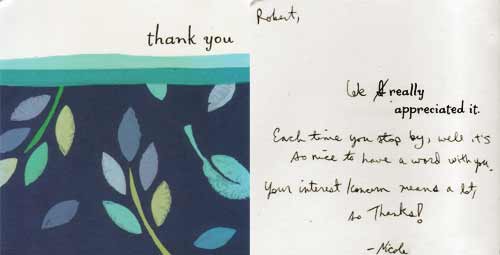 thank you
Robert,
We really
appreciated it.
Each time you stop by, well it's
so nice to have a word with you.
Your interest/concern means a lot,
so Thanks!
- Nicole